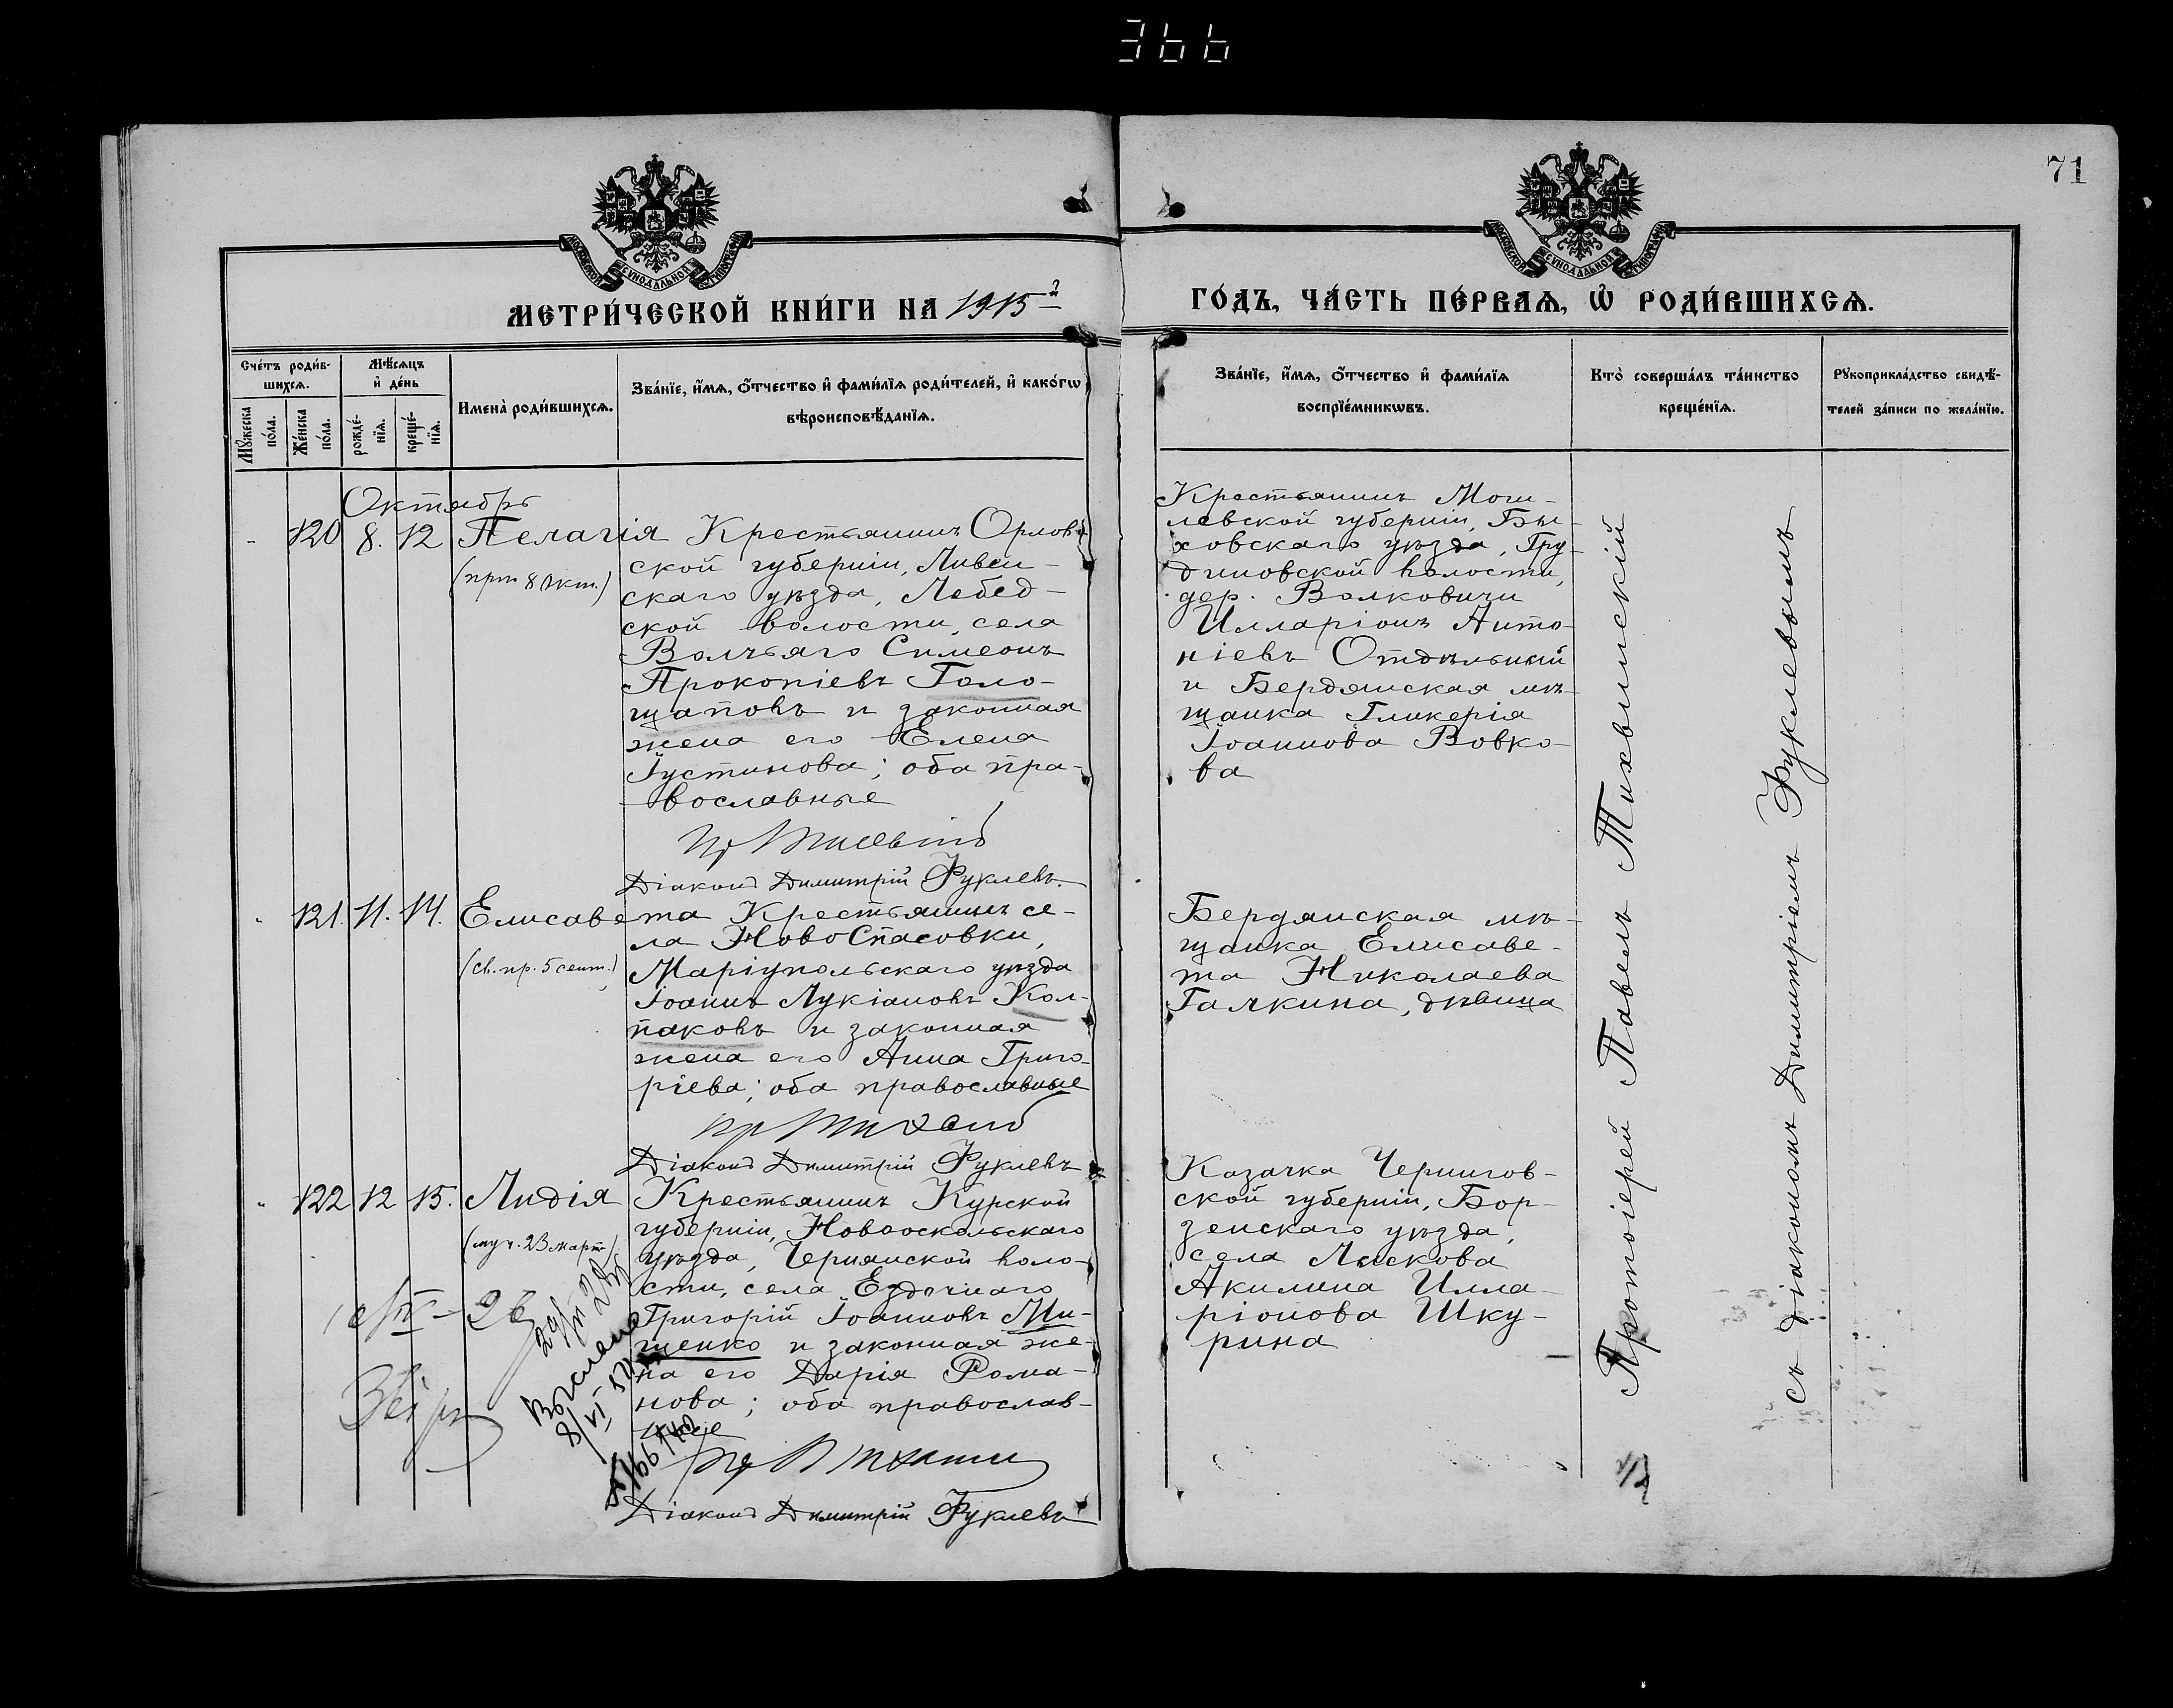 366
71
МЕТРИ́ЧЕСКОЙ КНИ́ГИ НА 1915 г
ГО́ДЪ, ЧА́СТЬ ПЕ́РВАѦ, Ѽ РОДИ́ВШИХСѦ.
Сче́тъ роди́в-
шихсѧ.
Мѣ́сѧцъ
и҆ де́нь
Мꙋ́жеска
по́ла.
Же́нска
по́ла.
рожде́-
нїѧ.
креще́-
нїѧ.
Имена̀ роди́вшихсѧ.
Зва́нїе, и҆́мѧ, ѻ҆́тчество и҆ фами́лїѧ роди́телей, и҆ како́гѡ
вѣроисповѣ́данїѧ.
Зва́нїе, и҆́мѧ, ѻ҆́тчество и҆ фами́лїѧ
воспрїе́мникѡвъ.
Кто̀ соверша́лъ та́инство
креще́нїѧ.
Рꙋкоприкла́дство свидѣ́-
телей за́писи по жела́нїю.
Октябрь
120 8. 12 Пелагія
(прп 8 окт.)
Крестьянинъ Орлов-
ской губерніи, Ливен-
скаго уѣзда, Лебед-
ской волости, села
Волчьяго Симеонъ
Прокопіевъ Голо-
щаповъ и законная
жена его Елена
Іустинова; оба пра-
вославные
Діаконъ Димитрій Фуклевъ.
Крестьянинъ Моги-
левской губерніи, Бы-
ховскаго уѣзда, Гру-
диновской волости,
дер. Волковичи
Илларіонъ Анто-
ніевъ Отдѣльный
и Бердянская мѣ-
щанка Гликерія
Іоаннова Вовко-
ва
121. 11. 14. Елисавета
(св. пр. 5 сент.)
Крестьянинъ се-
ла НовоСпасовки,
Маріупольскаго уѣзда
Іоаннъ Лукіановъ Кол-
паковъ и законная
жена его Анна Григо-
ріева; оба православные
Діаконъ Димитрій Фуклевъ
Бердянская мѣ-
щанка Елисаве-
та Николаева
Галкина, дѣвица
122 12 15. Лидія
(муч. 23 март.)
Крестьянинъ Курской
губерніи, Новооскольскаго
уѣзда, Чернянской воло-
сти, села Ездочнаго
Григорій Іоанновъ Ми-
щенко и законная же-
на его Дарія Рома-
нова; оба православ-
ные
Діаконъ Димитрій Фуклевъ
Казачка Чернигов-
ской губерніи, Бор-
зенскаго уѣзда,
села Лыскова
Акилина Илла-
ріонова Шку-
рина
Протоіерей Павелъ Тихвинскій
съ діакономъ Димитріемъ Фуклевымъ